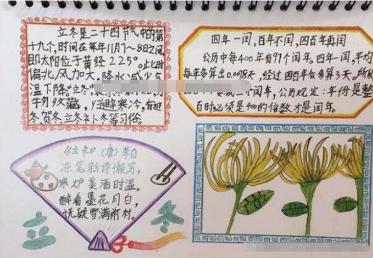 立冬是二十四节气中的
第十九个,时间在每年11月7~8日之间,
即太阳位于黄经225°。此时
偏北,风力加大,降水减少气
温下降。立冬
物收藏,归避寒冷,有迎
冬、贺冬、立冬补冬等习俗
四年一闰,百年不闰,四百年再闰
公历中每400年有97个闰年。四年一年,平均
每年多算出0.0078天,经过四百年多算3天,所以
二个闰年,公历规定:年份是整
百时必须是400的倍数才是闰年。
《立冬》(唐)李白
冻笔新诗懒写,
寒炉美酒时温,
醉看墨花月白,
恍疑雪满前村。
立
冬